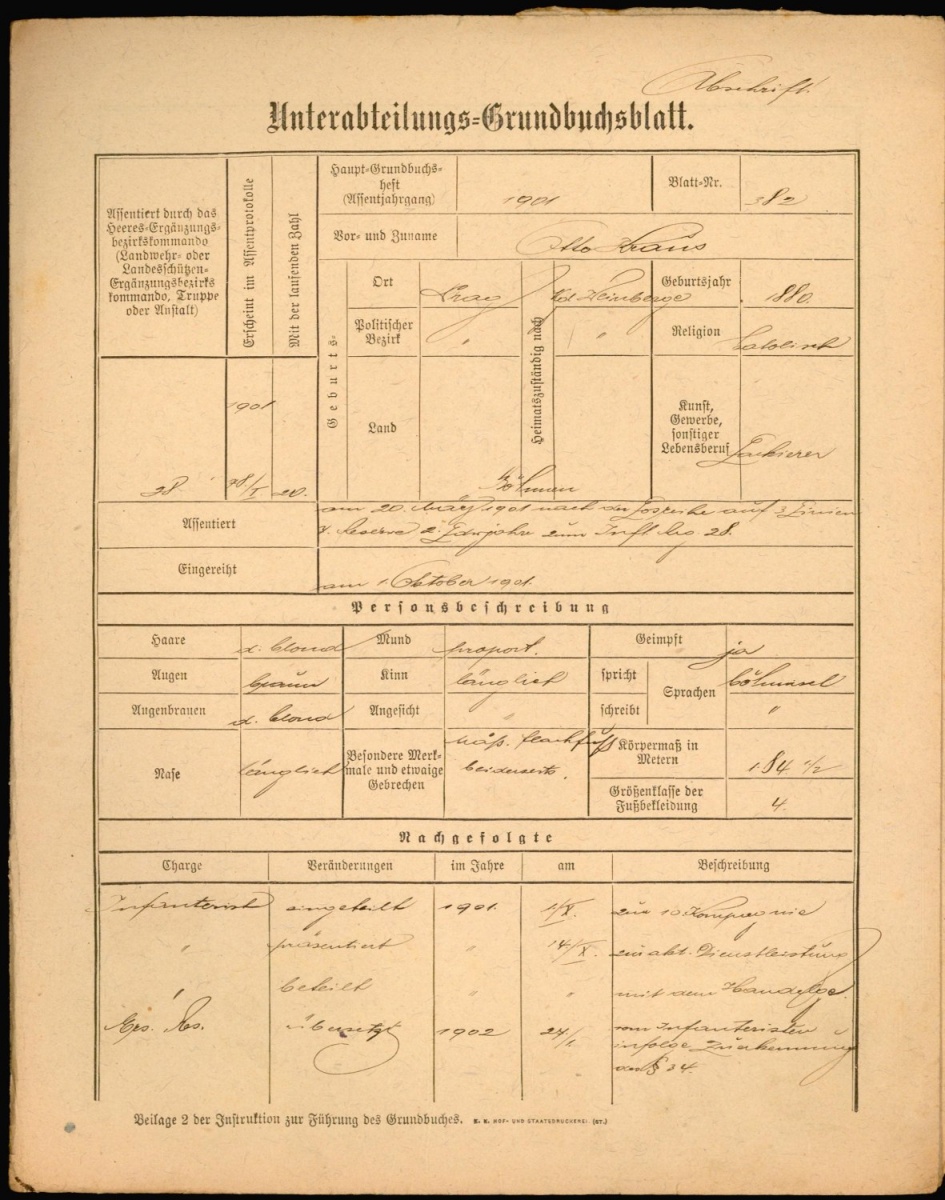 Abschrift.
Unterabteilungs-Grundbuchsblatt.
Assentiert durch das
Heeres-Ergänzungs-
bezirkskommando
(Landwehr- oder
Landesschützen-
Ergänzungsbezirks
kommando, Truppe
oder Anstalt)
Erscheint im Assentprotokolle
Mit der laufenden Zahl
Haupt-Grundbuchs-
heft
(Assentjahrgang)
1901
Blatt-Nr.
382
Vor- und Zuname
Otto Kraus
Geburts-
Ort
Prag
Heimatszuständig nach
Kgl. Weinberge
Geburtsjahr
1880
Politischer
Bezirk
"
"
Religion
Land
Böhmen
Kunst,
Gewerbe,
sonstiger
Lebensberuf
Lackierer
28.
1901
28./I
20.
Assentiert
am 20. März 1901 nach der Losreihe auf 3 Linien
7. Reserve 2. Ldwjahre zum Inft. Reg. 28.
Eingereiht
am 1. Oktober 1901.
Personsbeschreibung
Haare
d. blond
Mund
proport.
Geimpft
ja
Augen
braun
Kinn
länglich
spricht
Sprachen
böhmisch
Augenbrauen
d. blond
Angesicht
"
schreibt
"
Nase
länglich
Besondere Merk-
male und etwaige
Gebrechen
mäß. Plachfuß
beiderseits.
Körpermaß in
Metern
1·84 1/2
Größenklasse der
Fußbekleidung
4.
Nachgefolgte
Charge Veränderungen im Jahre am Beschreibung
Infanterist eingeteilt 1901 1/X. zur 10 Kompagnie
" präsentiert " 14/X. zur akt. Dienstleistung
beteilt " " mit dem Handelge.
Ers. Res. übersetzt 1902 24/I vom Infanteristen
infolge Zuerkennung
des § 34.
Beilage 2 der Instruktion zur Führung des Grundbuches. K. K. HOF- UND STAATSDRUCKEREI. (ST.)